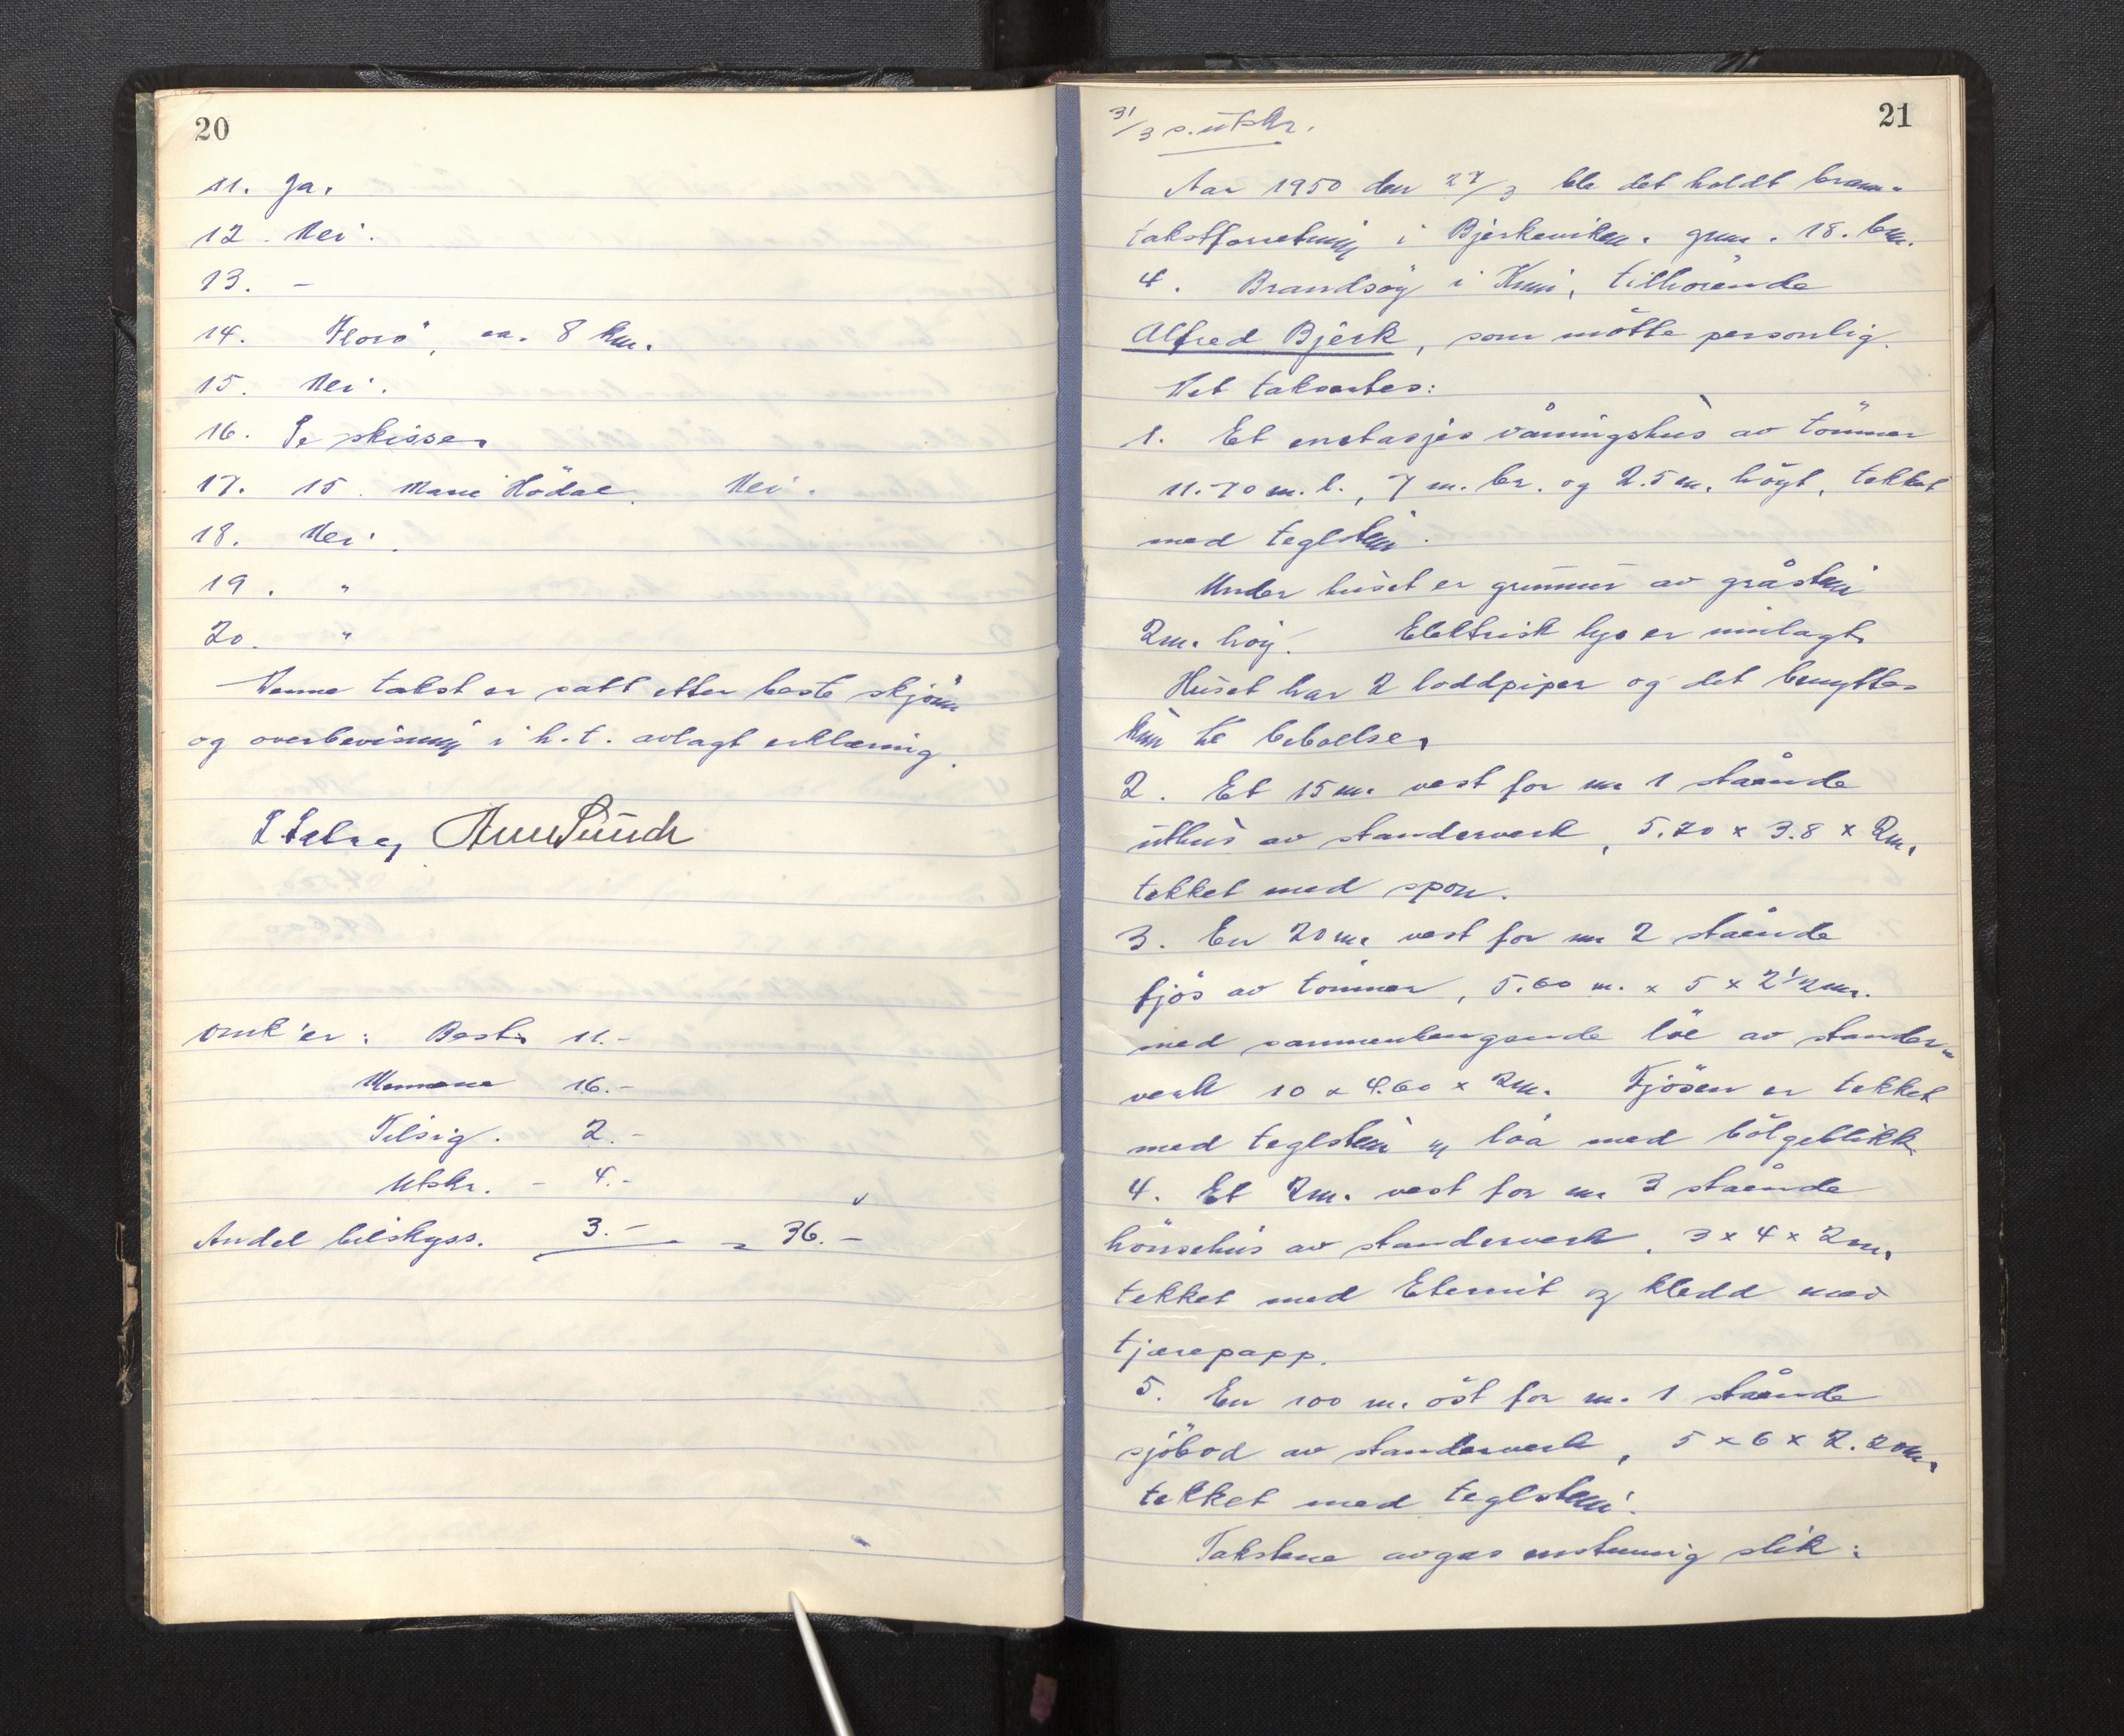 20
11. Ja.
12. Nei.
13. –
14. Florö, ca. 8 km.
15. Nei.
16. Se skisse.
17. 15. Marie Hödal. Nei.
18. Nei.
19. "
20. "
Denne takst er satt etter beste skjönn
og overbevisning i h.t. avlagt erklæring.
Omk'er: Best. 11.-
Mennene 16.-
Tilsig. 2.-
Utskr. - 4.-
Andel bilskyss. 3.- = 36.-
21
31/3 s. utskr.
Aar 1950 den 27/3 ble det holdt brann-
takstforretning i Bjerkeviken. gnr. 18. bnr.
4. Brandsöy i Kinn, tilhörende
Alfred Bjerk, som mötte personlig.
Det taksertes:
1. Et enetasjes våningshus av tömmer
11.70 m. l., 7 m. br. og 2.5 m. högt, tekket
med teglstein.
Under huset er grunnmur av gråstein
2 m. höy. Elektrisk lys er innlagt.
Huset har 2 loddpiper og det benyttes
kun til beboelse.
2. Et 15 m. vest for nr 1 stående
uthus av standerverk, 5.70 x 3.8 x 2 m.
tekket med spon.
3. En 20 m. vest for nr 2 stående
fjös av tömmer, 5.60 m. x 5 x 2 1/2 m.
med sammenhengende löe av stander-
verk 10 x 4.60 x 2 m. Fjösen er tekket
med teglstein og löa med bölgeblikk.
4. Et 2 m. vest for nr 3 stående
hönsehus av standerverk, 3 x 4 x 2 m.
tekket med Eternit og kledd med
tjærepapp.
5. En 100 m. öst for nr. 1 stående
sjöbod av standerverk, 5 x 6 x 2.20 m.
tekket med teglstein.
Takstene avgas enstemmig slik: